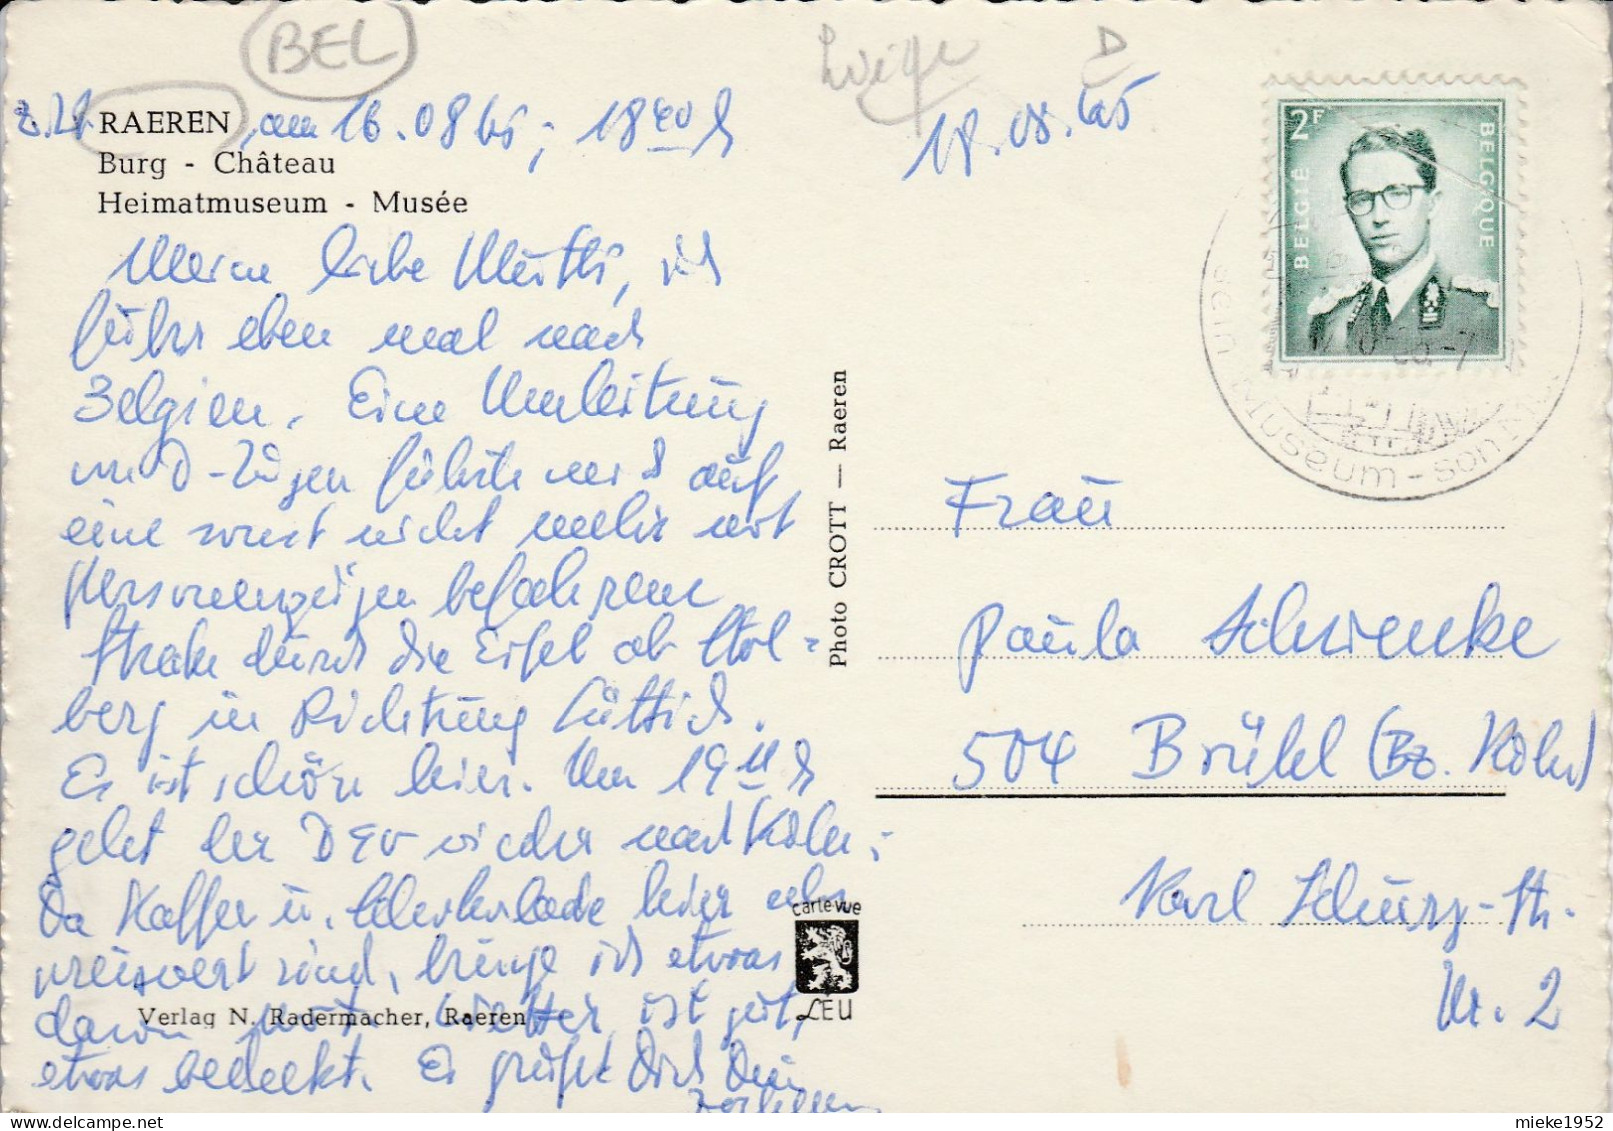 BEL
Z. Zt. RAEREN, am 16.08.65; 18 40 h
Burg - Château
Heimatmuseum - Musée
Meine liebe Mutti, ich
fuhr eben mal nach
Belgien. Eine Umleitung
von D-Zügen führte mich auf
eine sonst nicht mehr mit
Personenzügen befahrene
Strecke durch die Eifel ab Stol=
berg in Richtung Lüttich.
Es ist schön hier. Um 19 h
geht der DEV wieder nach Köln;
Da Kaffee u. Schokolade hier sehr
preiswert sind, bringe ich etwas
davon mit. Wetter ist gut,
etwas bedeckt. Es grüßt Dich Dein
Verlag N. Radermacher, Raeren
Photo CROTT — Raeren
carte vue
LEU
D
18.08.65
2F
BELGIË
BELGIQUE
sein Museum - son
Frau
Paula Schwencke
504 Brühl (Bz. Köln)
Karl Schurz-Str.
Nr. 2
mieke1952